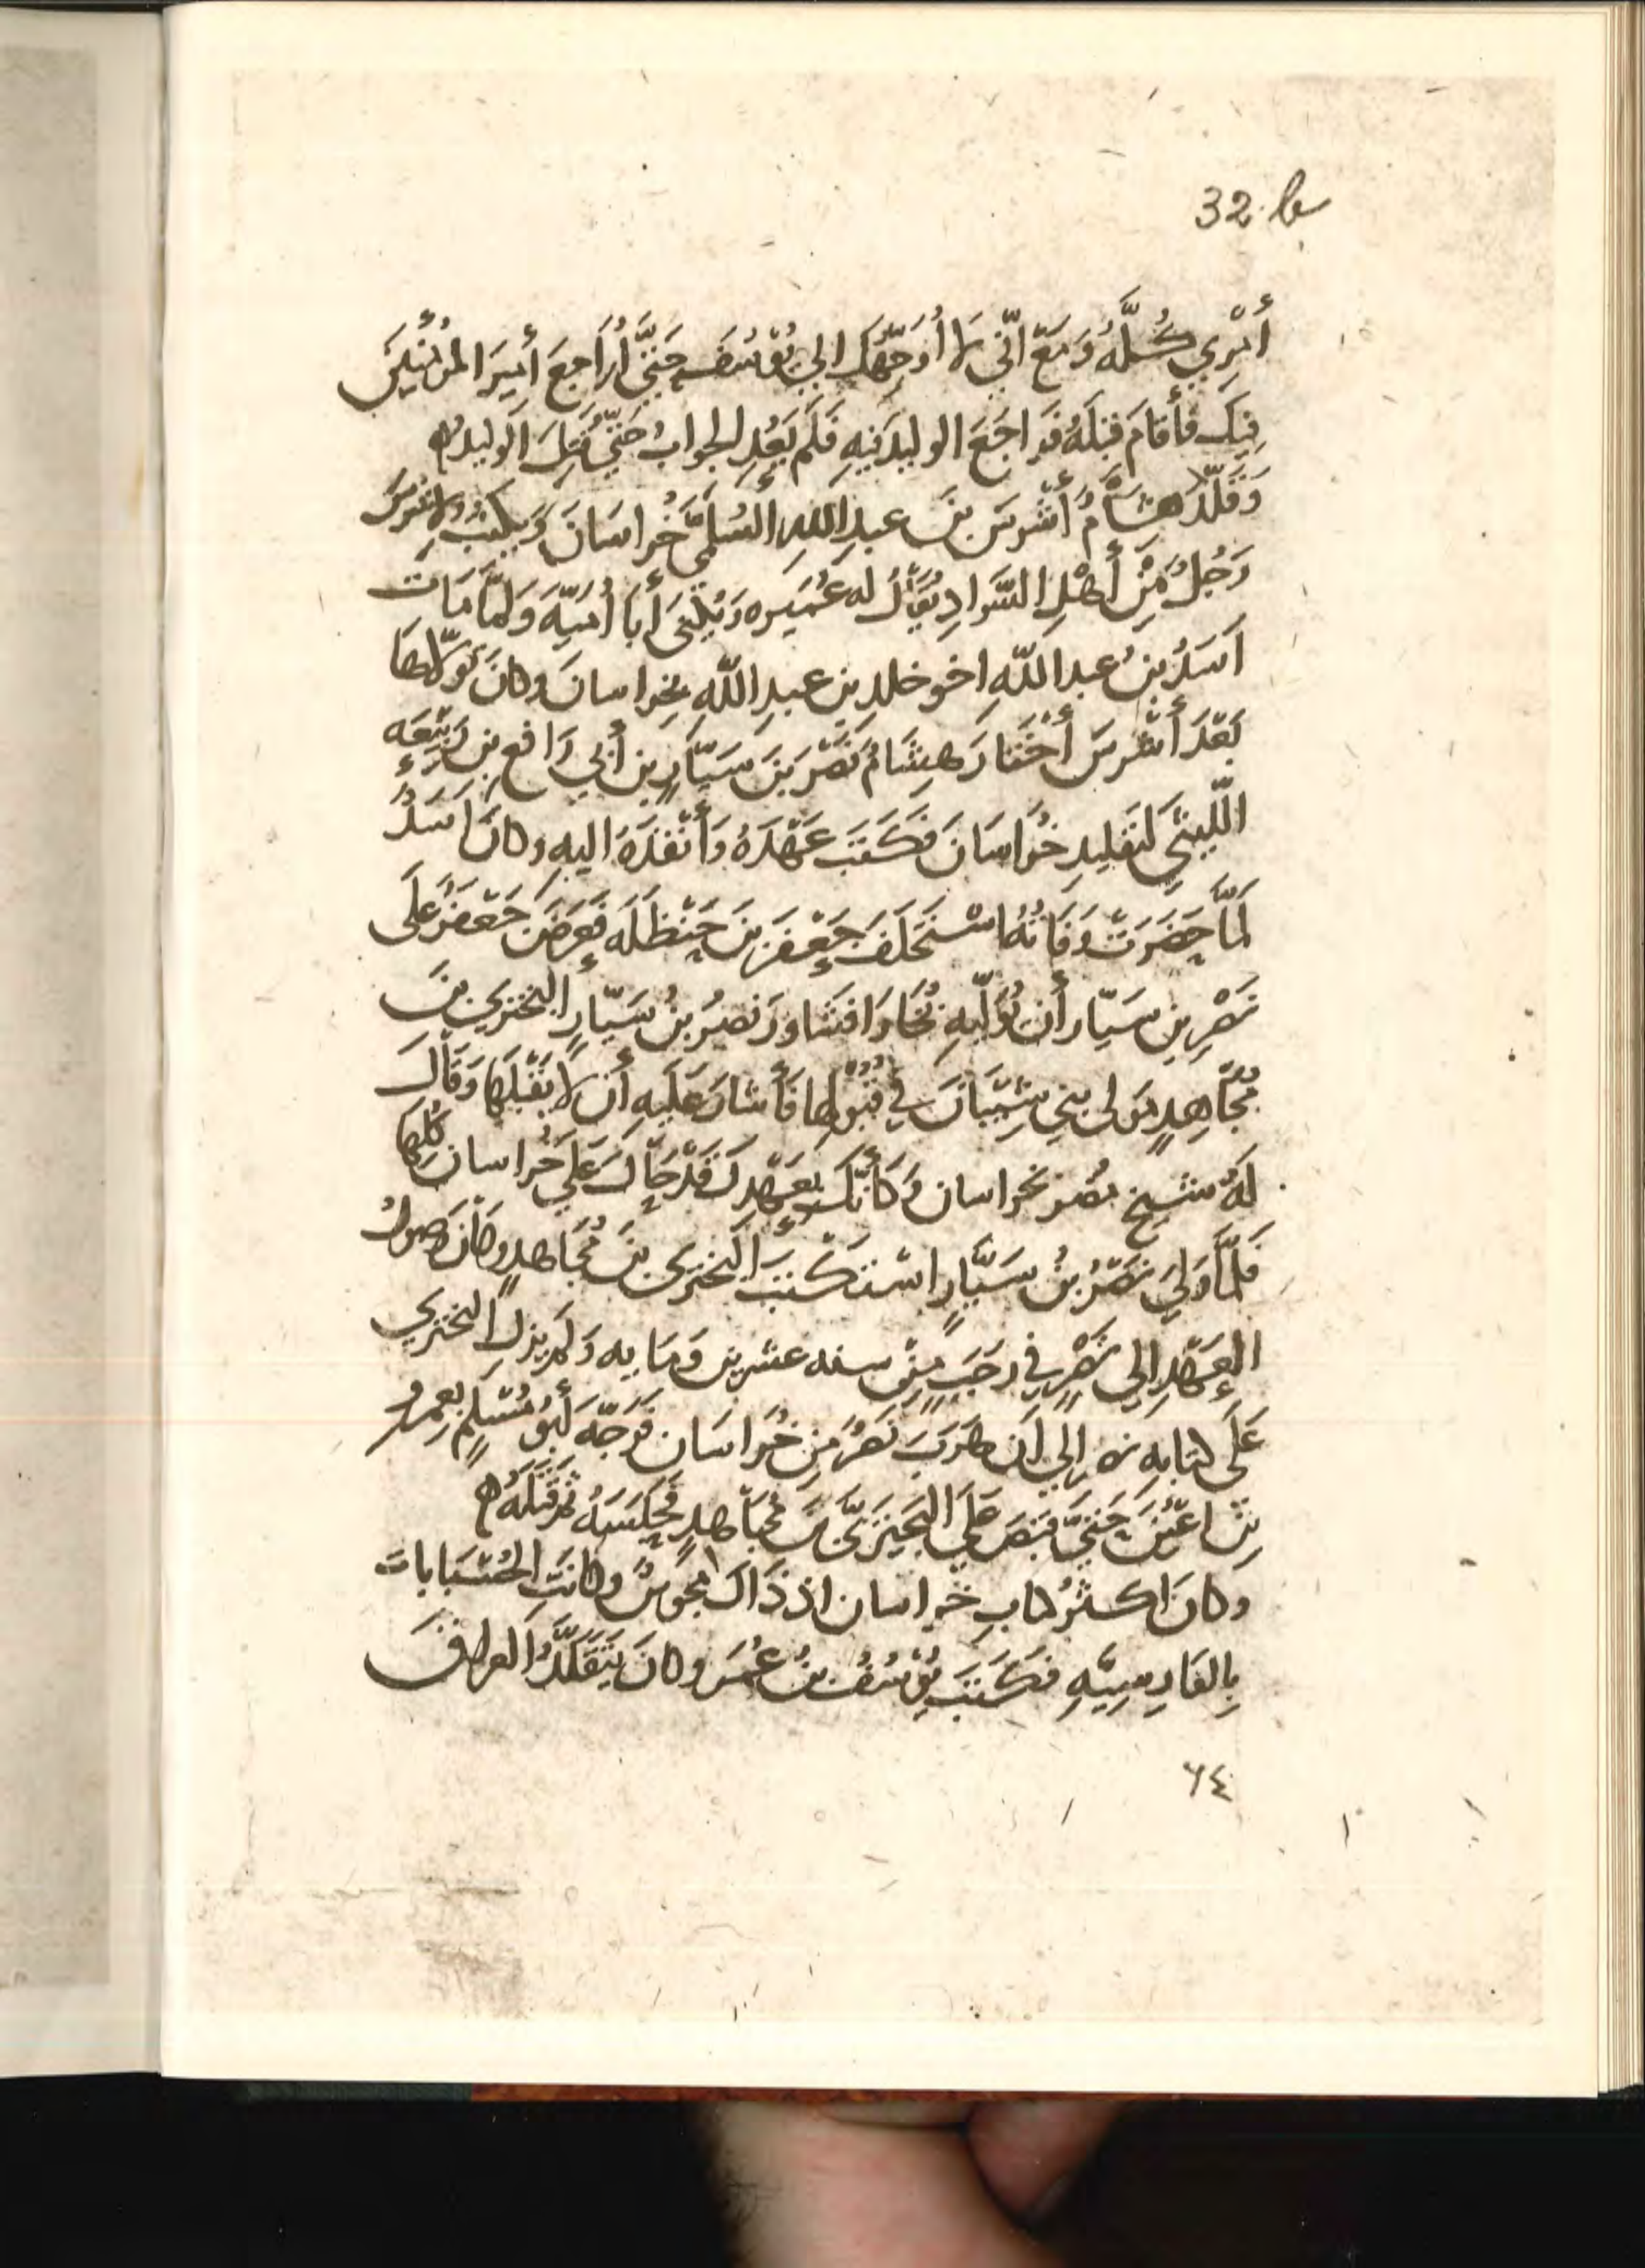 32. b
أَمْرِي كُلَّهُ وَمَعَ انّي لا أُوَجِّهُكَ الي يُوسُفَ حَتَّي أُرَاجِعَ أَمِيرَ المُؤْمِنِينَ
فِيكَ فَأَقَامَ قِبَلَهُ فَرَاجَعَ الوليدَ فيهِ فَلَم يَعُدِ الجوابُ حَتّي قُتِلَ الوَليدُ ه
وَقَلَّدَ هِشَامٌ أَشْرسَ بنَ عبدِ اللهِ السُّلَمِيَّ خُراسَانَ وَيَكتُبُ لِاشْرَسَ
رَجُلٌ مِّنْ أَهْلِ السَّوادِ يُقَالُ له عُمَيره وَيُكْنَى أَبَا أُمَيَّةَ وَلَمَّا مَاتَ
اَسَدُ بنُ عبد اللّهِ اخو خلد بنِ عبدِ اللّهِ بخراسانَ وكانَ تَوَلّاهَا
بَعْدَ أَشْرسَ أَخْتَارَ هِشَامُ نَصْرَ بنَ سَيَّارِ بن أَبي رَافع بن رَبيعَه
اللّيثيَّ لتَقليدِ خُرَاسَانَ فَكَتَبَ عَهْدَهُ وَأَنْفَذَهُ اليهِ وكانَ اَسَدٌ
لَمَّا حَضَرَتْ وَفَاتُهُ اسْتَخلَفَ جَعْفَرَ بنَ حَنْظَلَه فَعَرَضَ جَعْفَرٌ عَلَى
نَصْرِ بنِ سَيّار أَن يُوَلّيهِ بُخَارَا فشَاوَرَ نصرُ بنُ سَيّارٍ البختريَّ بنَ
مُجَاهِدٍ مَولى بني شَيْبَانَ في قَبُولِها فَأَشارَ عَلَيهِ أَن لا يَقْبَلَهَا وَقَالَ
لَهُ شيخ مضر بخراسان وَكَأَنَّكَ بعَهْدِكَ قَدْ جَاكَ عَلي خُراسان كُلِّهَا
فَلَمَّا وَلِيَ نَصْرُ بنُ سَيَّارٍ اسْتَكْتَبَ البختري بنَ مُجَاهدٍ وكَانَ وصولُ
العَهْدِ الي نَصْرٍ في رجَبٍ مِنْ سنه عشرين وَمايه وَلم يزل البختري
عَلَى كتابهِ نصر الي أَن هَرَبَ نَصْرُ مِن خُراسَان فَوَجَّهَ أَبُو مُسْلِمٍ بعمرو
بن اعْيَنَ حَتّي قبَضَ عَلَي البَختريّ بن مُجَاهدٍ فَحَبَسَهُ ثمّ قتَلَهُ ه
وكانَ اكثرُ كتابِ خراسان اذ ذَاكَ مجوسٌ وكانتِ الحُسْبَانات
بِالفَارِسِيَّهِ فَكَتَبَ يُوسُفُ بنُ عُمَرَ وكانَ يَتَقَلَّدُ العراقَ
٦٤